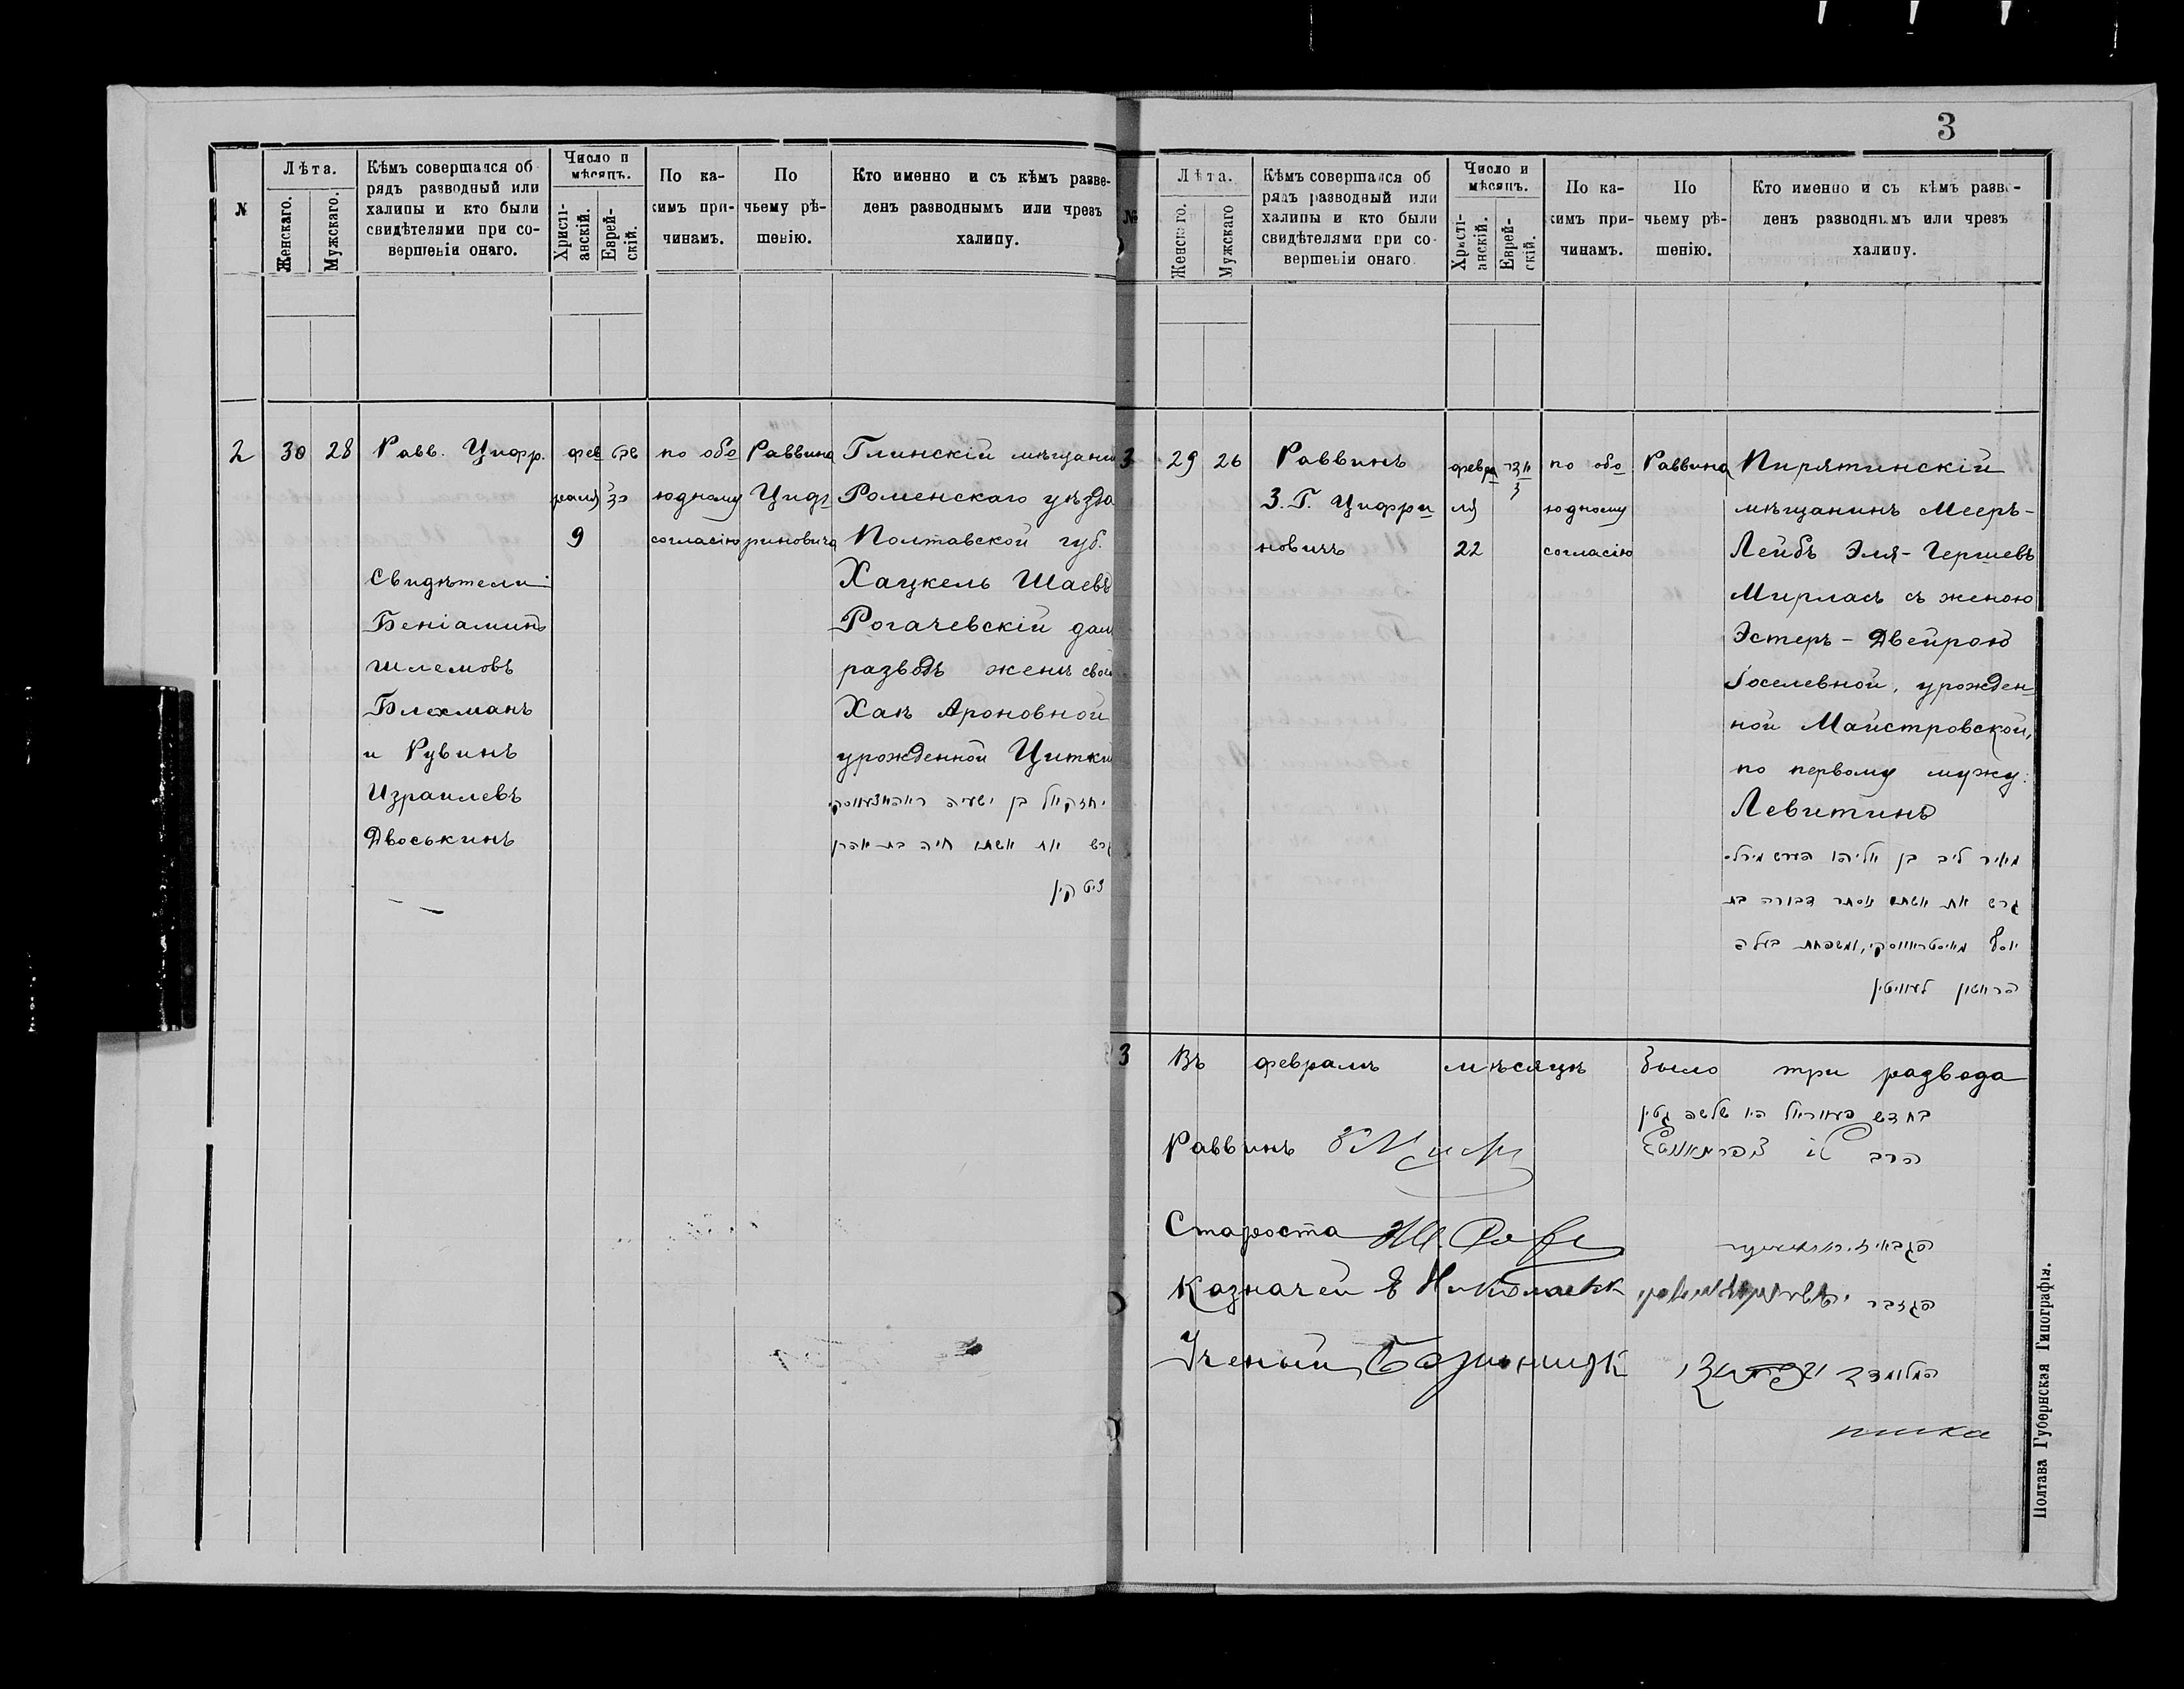 3
№
Лѣта.
Женскаго.
Мужскаго.
Кѣмъ совершался об
рядъ разводный или
халицы и кто были
свидѣтелями при со-
вершеніи онаго.
Число и
мѣсяцъ.
Христі-
анскій.
Еврей-
скій.
По ка-
кимъ при-
чинамъ.
По
чьему рѣ-
шенію.
Кто именно и съ кѣмъ разве-
денъ разводнымъ или чрезъ
халицу.
2
30
28
Равв. Цифр.
Свидѣтели
Беніаминъ
Шлемовъ
Блехманъ
и Рувинъ
Израилевъ
Двоськинъ
фев
раля
9
по обо
юдному
согласію
Раввина
Циф
риновича
Глинскій мѣщани
Роменскаго уѣзда
Полтавской губ.
Хацкель Шаевъ
Рогачевскій дал
разводъ женѣ свое
Хаѣ Ароновной
урожденной Цитки
יחזקאל בן ישעיה ראהאצעווסקי
גרש את אשתו חיה בת אהרן
ציטקין
№
Лѣта.
Женскаго.
Мужскаго
Кѣмъ совершался об
рядъ разводный или
халицы и кто были
свидѣтелями при со-
вершеніи онаго
Число и
мѣсяцъ.
Христі-
анскій.
Еврей-
скій.
По ка-
кимъ при-
чинамъ.
По
чьему рѣ-
шенію.
Кто именно и съ кѣмъ разве-
денъ разводнымъ или чрезъ
халицу.
3
29
26
Раввинъ
З. Г. Цифри
новичъ
февра
ля
22
по обо
юдному
согласію
Раввина
Пирятинскій
мѣщанинъ Мееръ-
Лейбъ Эля-Гершевъ
Мирласъ съ женою
Эстеръ-Двейрою
Іоселевной, урожден
ной Майстровской,
по первому мужу
Левитинъ
מאיר ליב בן אליהו הערש מירל.
גרש את אשתו אסתר דבורה בת
יוסף מאיסטראווסקי, ומשפחת בעלה
הראשון לעוויטין
3
Въ февралѣ мѣсяцѣ было три развода
בחדש פעווראל היו שלשה גטין
Раввинъ
הרב
Староста
Казначей
הגזבר
Ученый
Полтава Губернская Типографія.